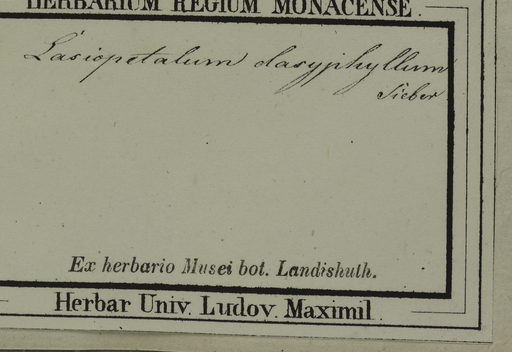 HERBARIUM REGIUM MONACENSE.
Lasiopetalum dasyphyllum
Sieber
Ex herbario Musei bot. Landishuth.
Herbar Univ. Ludov. Maximil.